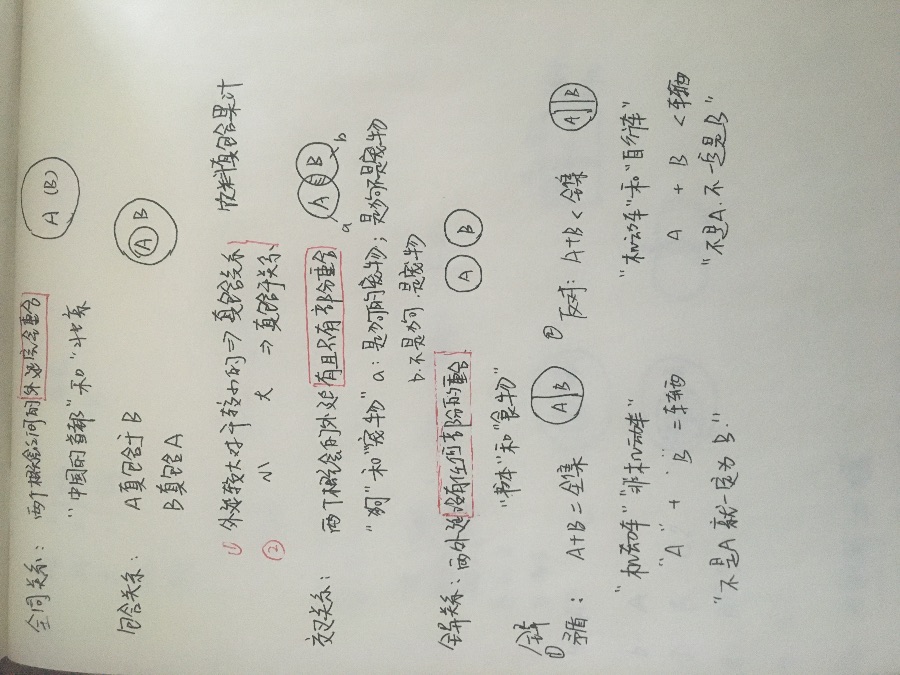 全同关系：两个概念之间的外延完全重合 A (B)
"中国的首都"和"北京"
包含关系：A真包含于B A B
B真包含A
① 外延较大对于较小的⇒真包含关系 饮料真包含果汁
② 小 大 ⇒真包含于关系
交叉关系：两个概念的外延有且只有部分重合 A B a b
"狗"和"宠物" a：是狗的宠物；是狗不是宠物
b.不是狗.是宠物
全异关系：两外延没有任何部分的重合. A B
"书本"和"食物"
全异
① 矛盾：A+B=全集 A B ② 反对：A+B<全集 A B
"机动车""非机动车" "机动车"和"自行车"
"A" + B =车辆 A + B <车辆
"不是A就一定为B." "不是A.不一定是B"